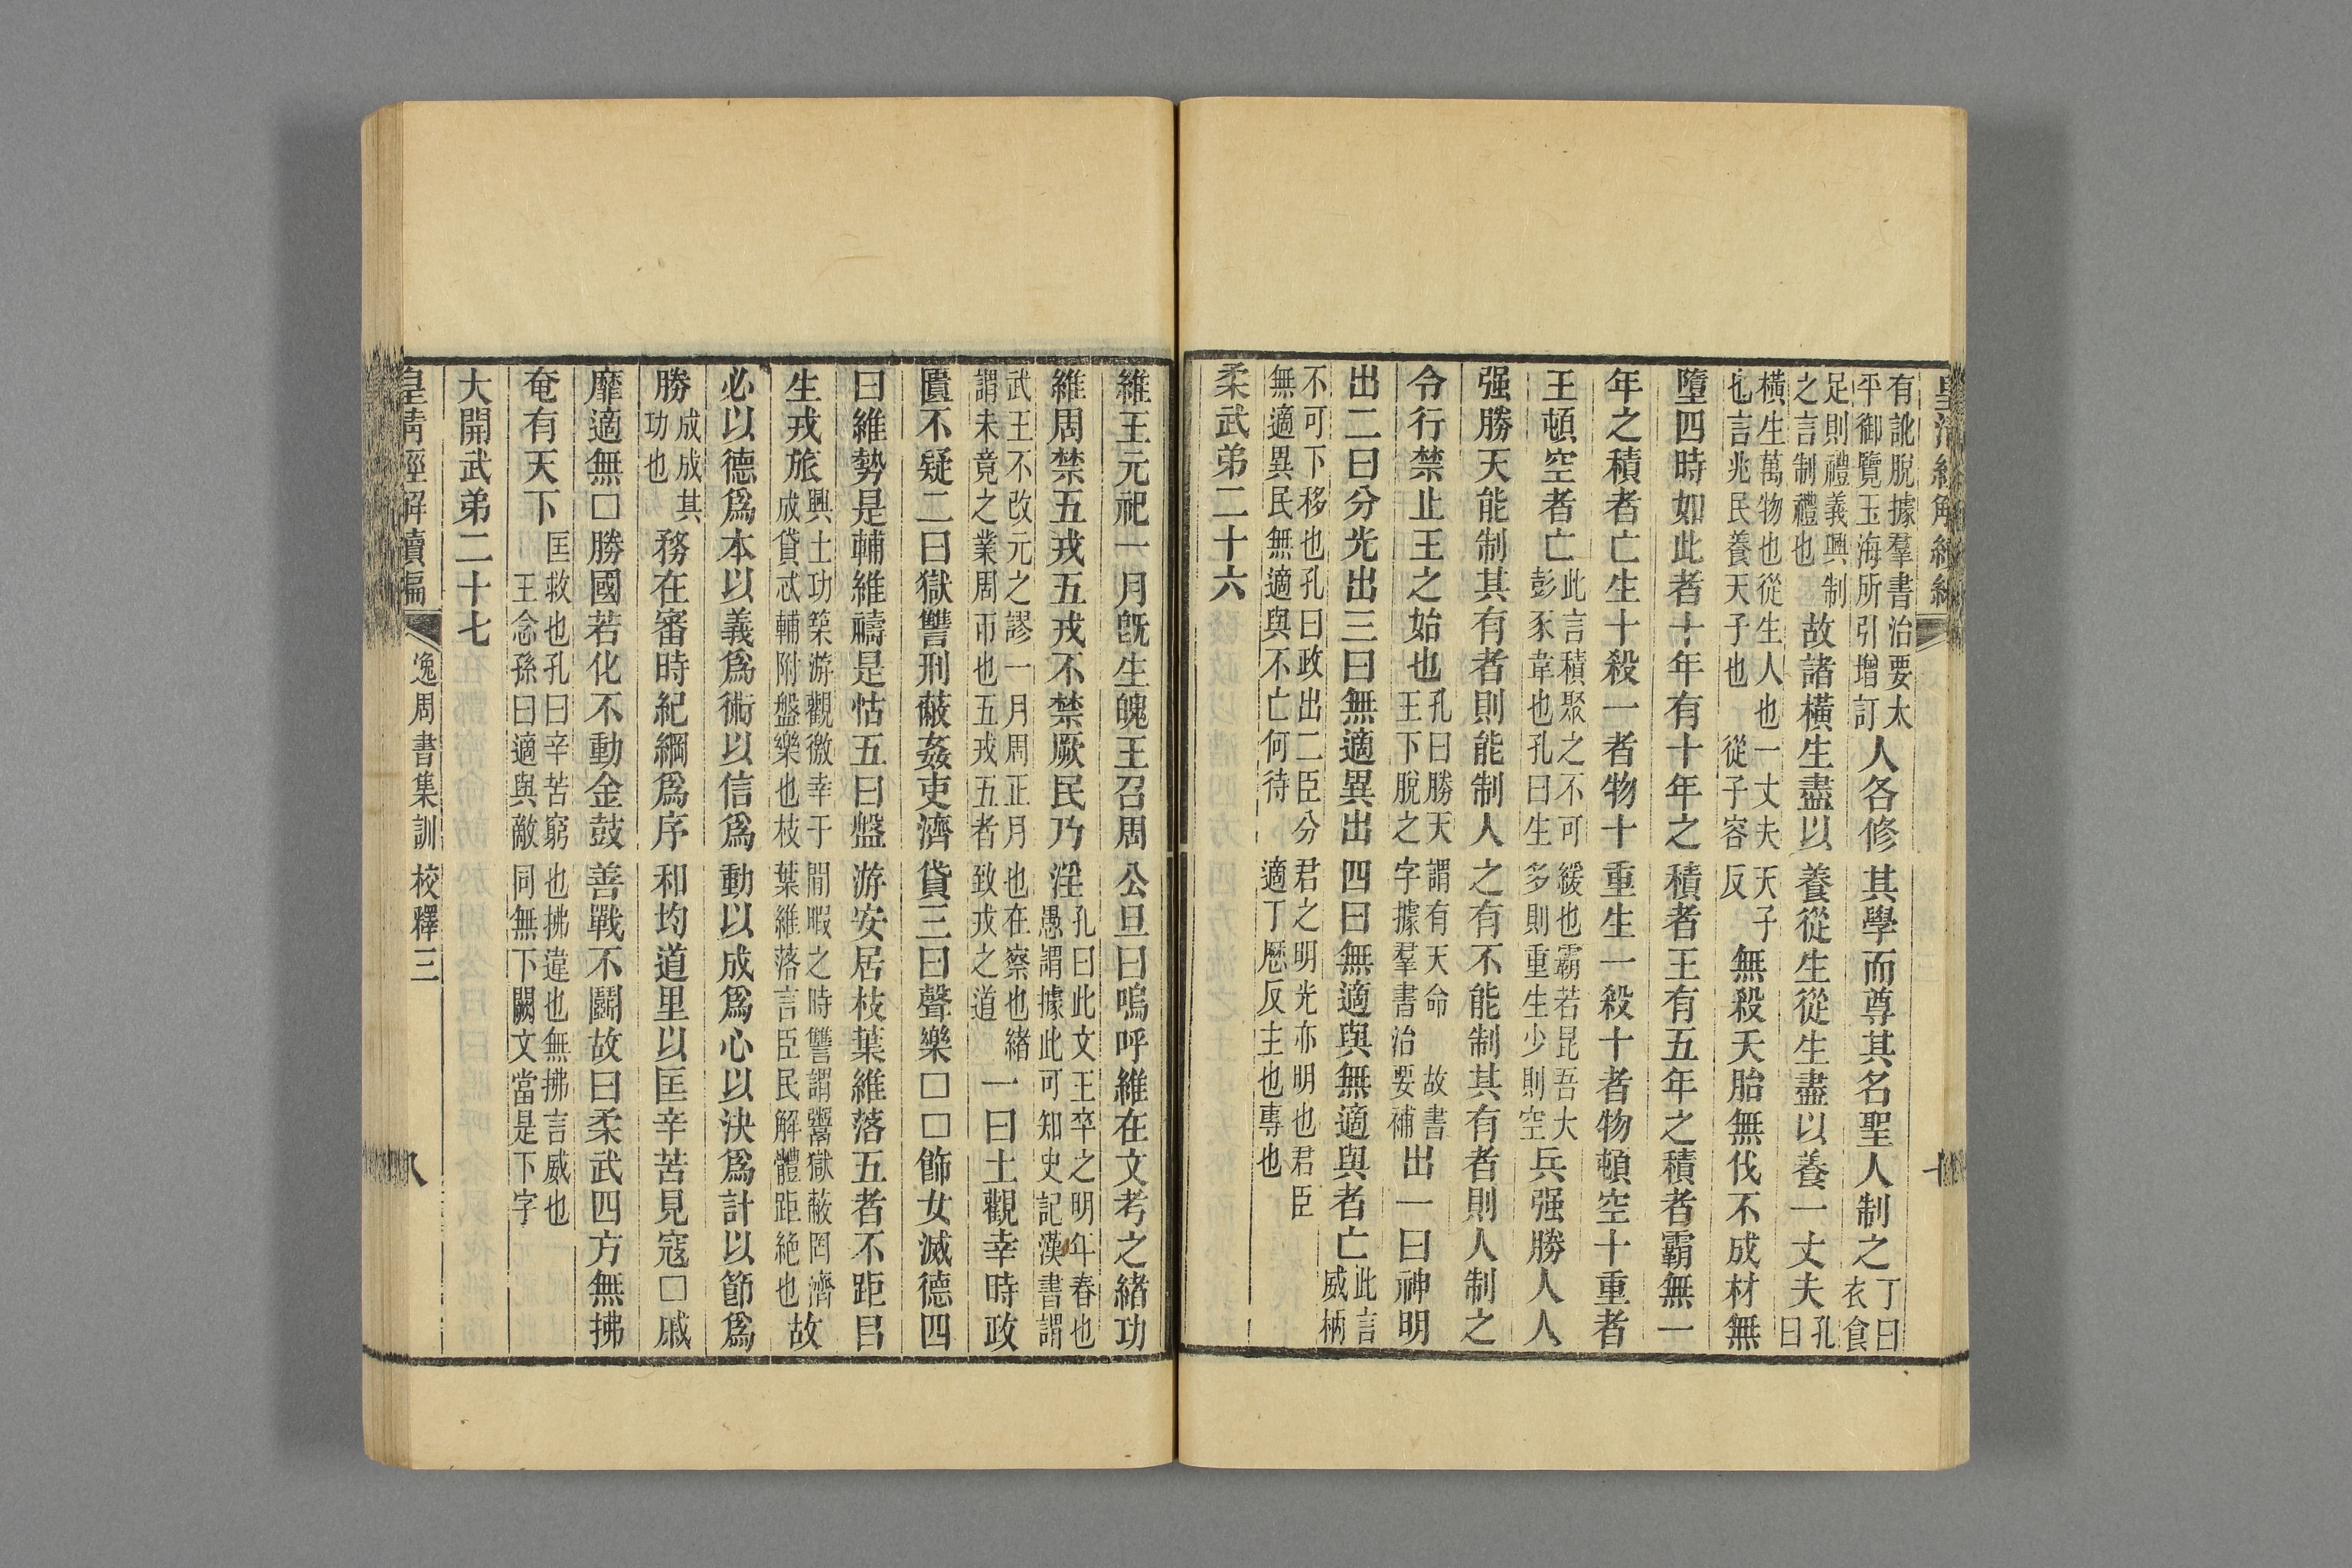 皇清經解續編 十
有訛脫據羣書治要太平御覽玉海所引增訂人各修其學而尊其名聖人制之丁曰衣食
足則禮義興制之言制禮也故諸橫生盡以養從生從生盡以養一丈夫孔曰
橫生萬物也從生人也一丈夫天子也言兆民養天子也 從子容反無殺夭胎無伐不成材無
墮四時如此者十年有十年之積者王有五年之積者霸無一
年之積者亡生十殺一者物十重生一殺十者物頓空十重者
王頓空者亡此言積聚之不可緩也霸若昆吾大彭豕韋也孔曰生多則重生少則空兵强勝人人
强勝天能制其有者則能制人之有不能制其有者則人制之
令行禁止王之始也孔曰勝天謂有天命 故書王下脫之字據羣書治要補出一曰神明
出二曰分光出三曰無適異出四曰無適與無適與者亡此言威柄
不可下移也孔曰政出二臣分君之明光亦明也君臣無適異民無適與不亡何待 適丁歷反主也專也
柔武弟二十六
維王元祀一月旣生魄王召周公旦曰嗚呼維在文考之緒功
維周禁五戎五戎不禁厥民乃淫孔曰此文王卒之明年春也愚謂據此可知史記漢書謂
武王不改元之謬一月周正月也在察也緒謂未竟之業周帀也五戎五者致戎之道一曰土觀幸時政
匱不疑二曰獄讐刑蔽姦吏濟貸三曰聲樂□□飾女滅德四
曰維勢是輔維禱是怙五曰盤游安居枝葉維落五者不距自
生戎旅興土功築游觀徼幸于閒暇之時讐謂鬻獄蔽罔濟成貸忒輔附盤樂也枝葉維落言臣民解體距絶也故
必以德爲本以義爲術以信爲動以成爲心以決爲計以節爲
勝成成其功也務在審時紀綱爲序和均道里以匡辛苦見寇□戚
靡適無□勝國若化不動金鼓善戰不鬭故曰柔武四方無拂
奄有天下匡救也孔曰辛苦窮也拂違也無拂言威也 王念孫曰適與敵同無下闕文當是下字
大開武弟二十七
皇清經解續編 逸周書集訓校釋三 八